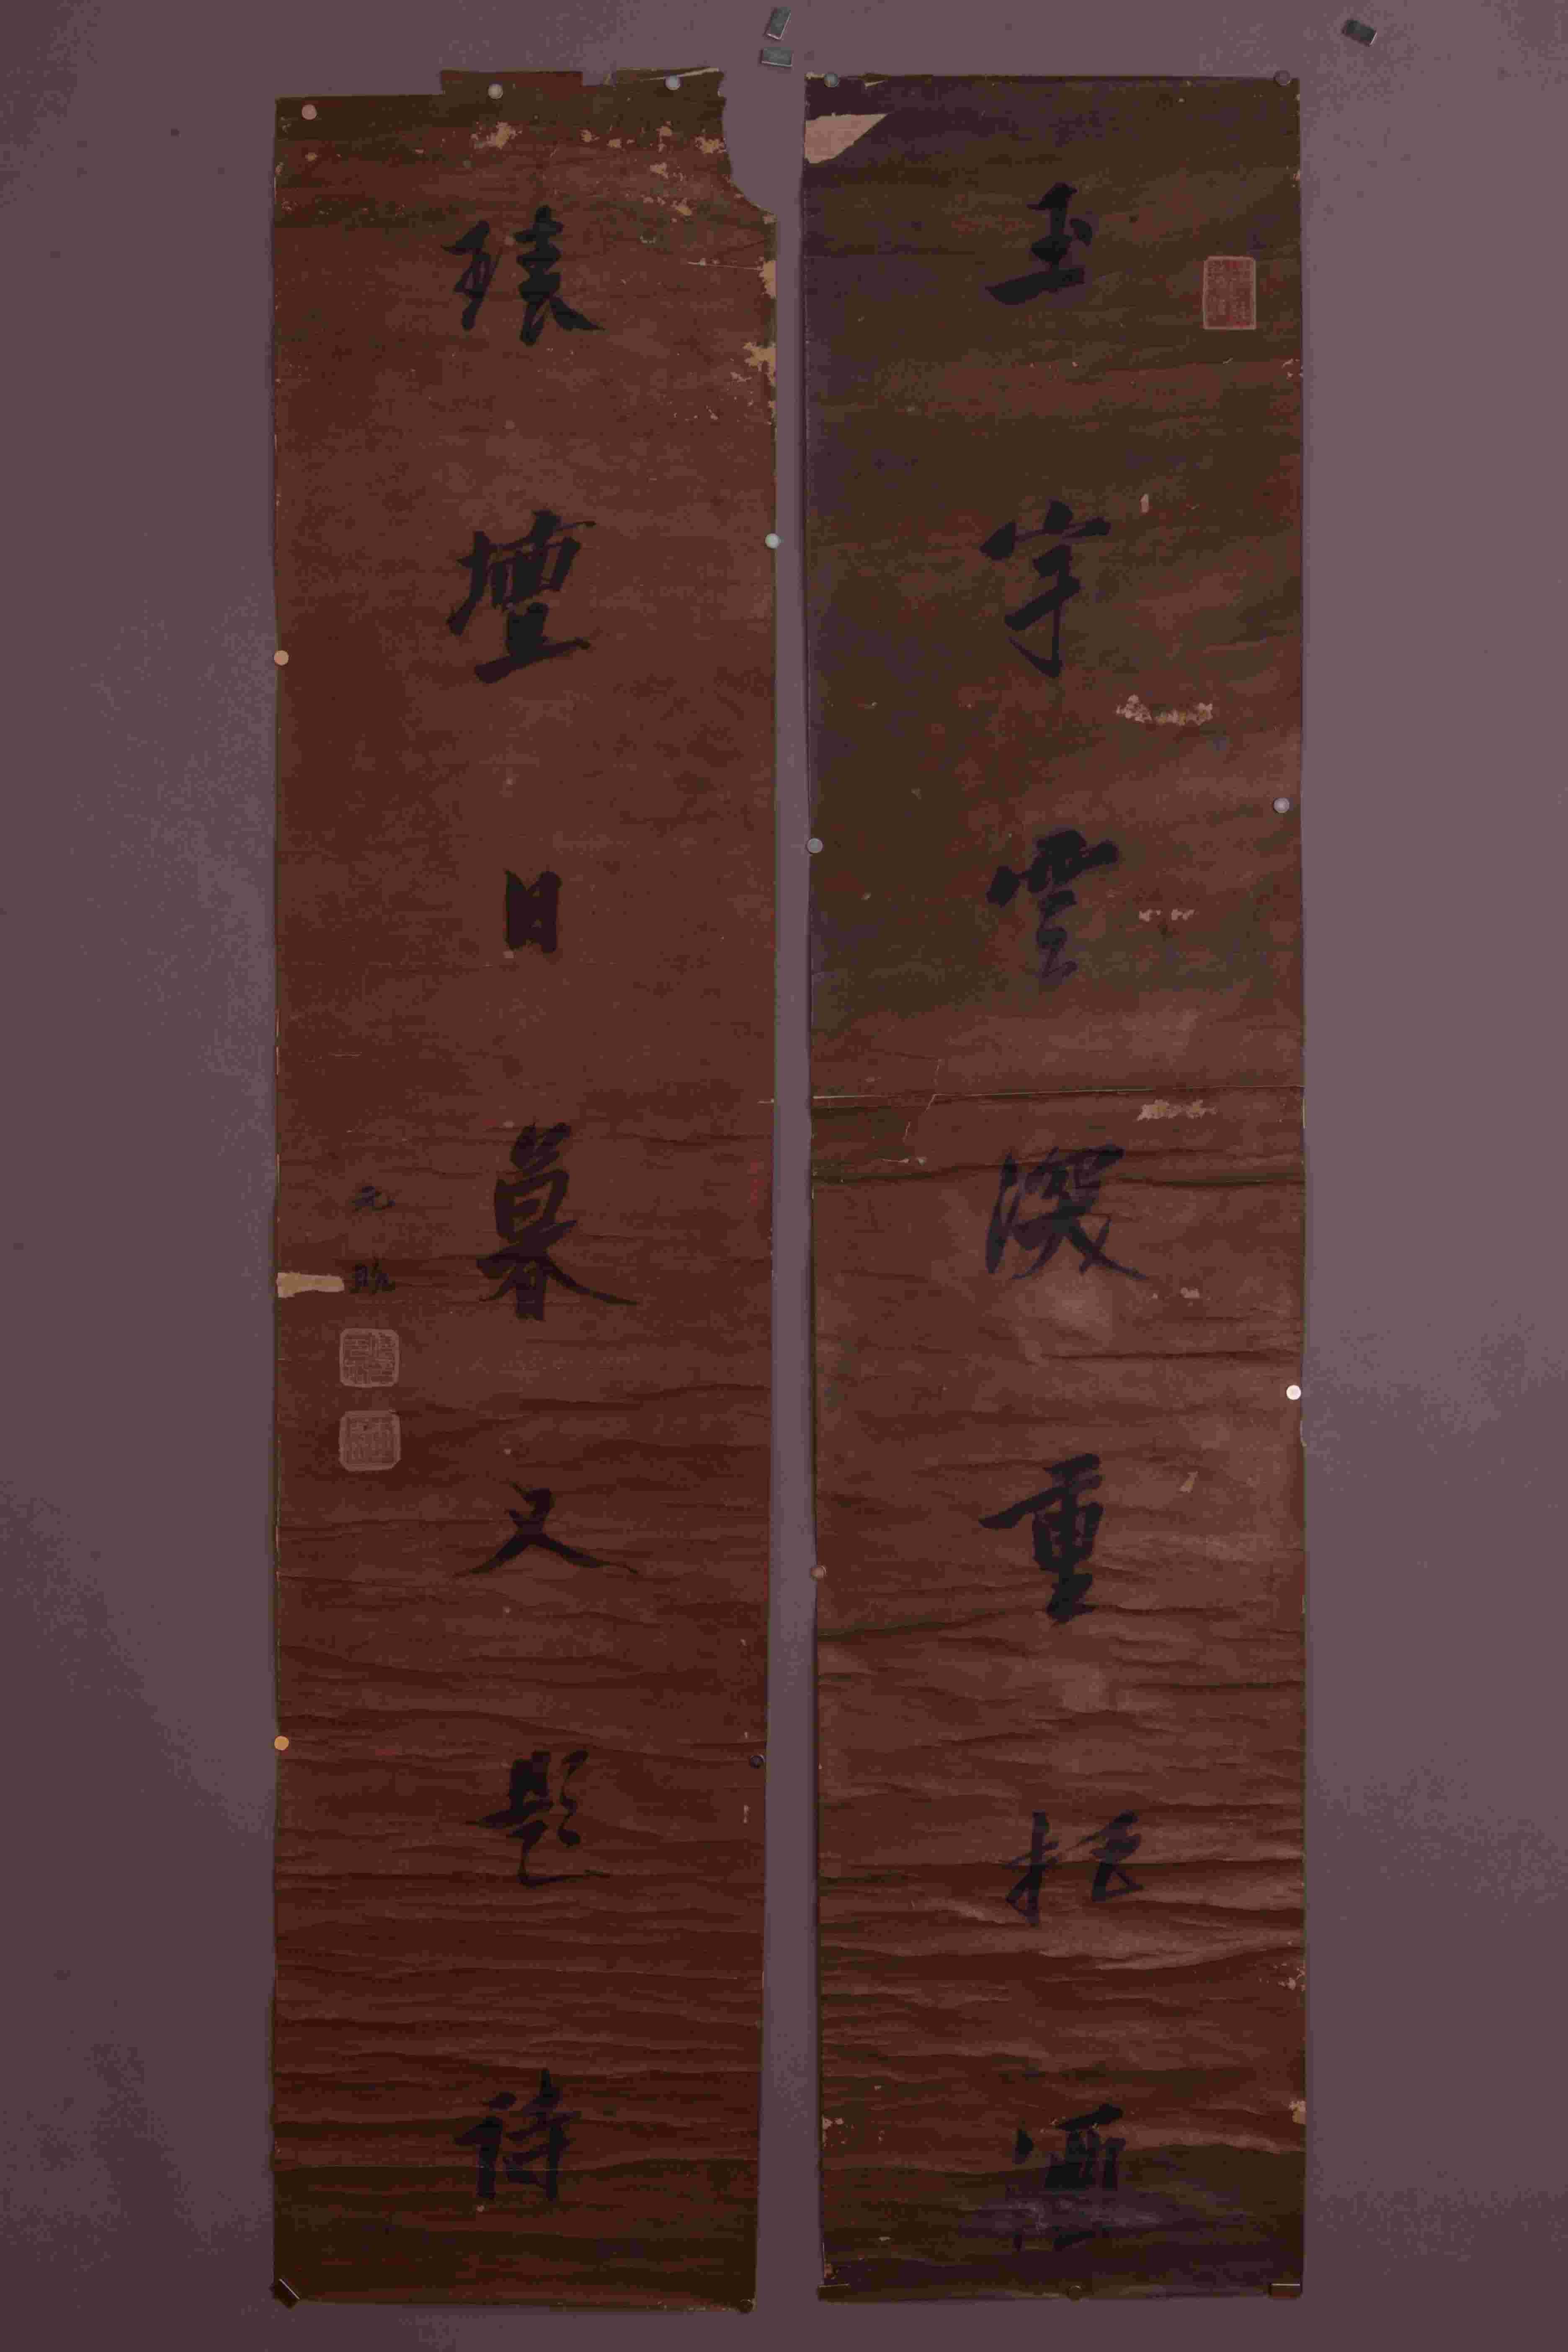 玉宇雲深重把酒
壇日暮又題詩
元